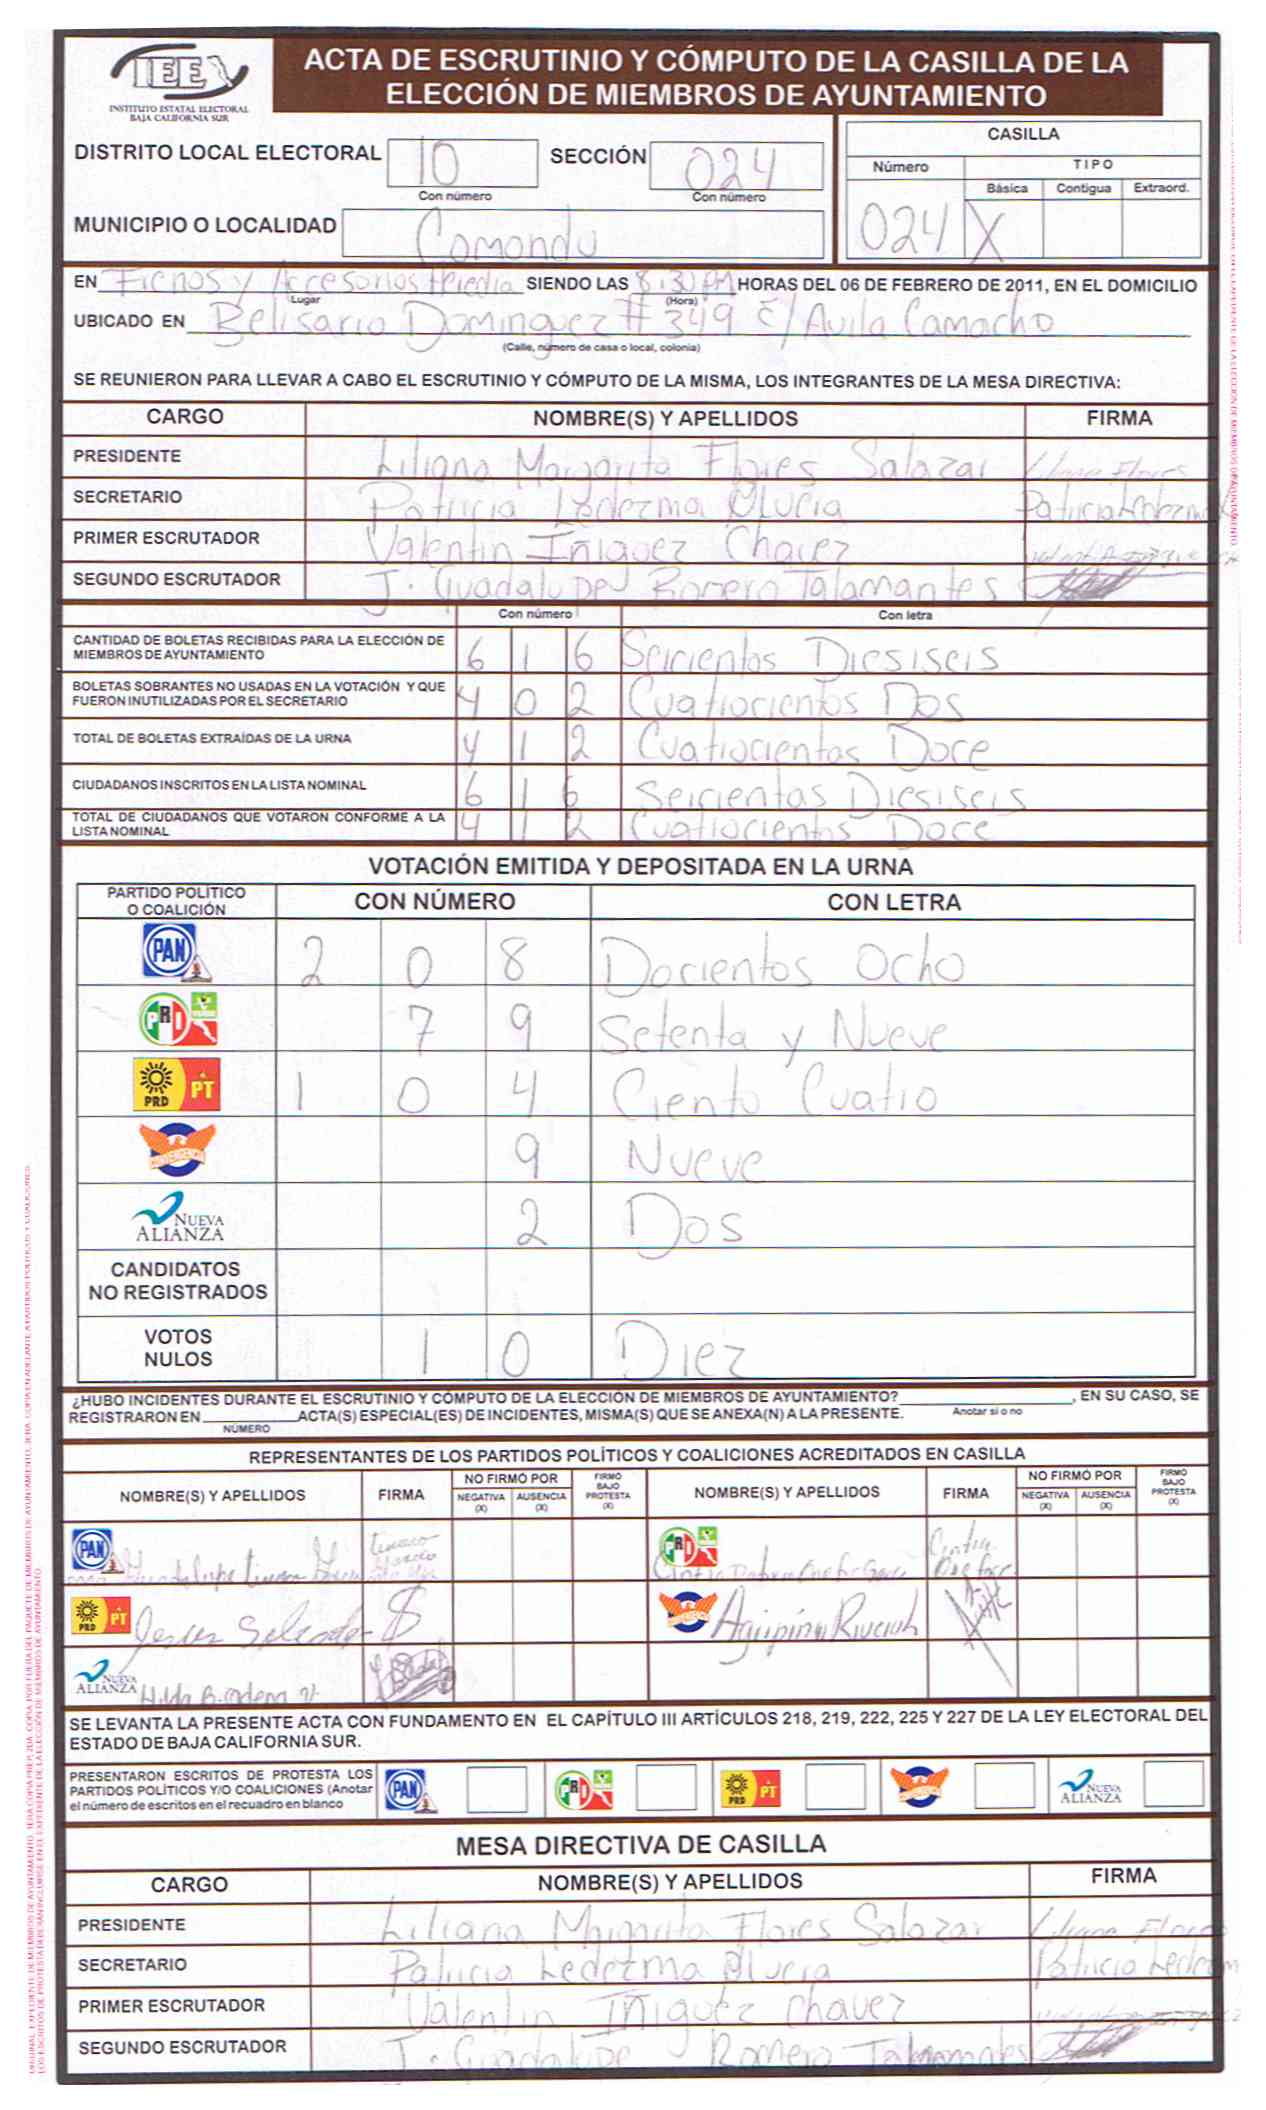 IEE
INSTITUTO ESTATAL ELECTORAL
BAJA CALIFORNIA SUR
ACTA DE ESCRUTINIO Y CÓMPUTO DE LA CASILLA DE LA
ELECCIÓN DE MIEMBROS DE AYUNTAMIENTO
DISTRITO LOCAL ELECTORAL 10 SECCIÓN 024
Con número Con número
MUNICIPIO O LOCALIDAD Comondu
CASILLA
Número TIPO
Básica Contigua Extraord.
024 X
EN Frenos y Accesorios Heredia SIENDO LAS 8:30 PM HORAS DEL 06 DE FEBRERO DE 2011, EN EL DOMICILIO
Lugar (Hora)
UBICADO EN Belisario Dominguez # 349 c/ Avila Camacho
(Calle, número de casa o local, colonia)
SE REUNIERON PARA LLEVAR A CABO EL ESCRUTINIO Y CÓMPUTO DE LA MISMA, LOS INTEGRANTES DE LA MESA DIRECTIVA:
CARGO NOMBRE(S) Y APELLIDOS FIRMA
PRESIDENTE Liliana Margarita Flores Salazar Liliana Flores
SECRETARIO Patricia Ledezma Patricia Ledezma
PRIMER ESCRUTADOR Valentin Iñiguez Chavez
SEGUNDO ESCRUTADOR J. Guadalupe Romero Talamantes
Con número Con letra
CANTIDAD DE BOLETAS RECIBIDAS PARA LA ELECCIÓN DE
MIEMBROS DE AYUNTAMIENTO 6 1 6 Seicientos Diesiseis
BOLETAS SOBRANTES NO USADAS EN LA VOTACIÓN Y QUE
FUERON INUTILIZADAS POR EL SECRETARIO 4 0 2 Cuatrocientos Dos
TOTAL DE BOLETAS EXTRAÍDAS DE LA URNA 4 1 2 Cuatrocientos Doce
CIUDADANOS INSCRITOS EN LA LISTA NOMINAL 6 1 6 Seicientos Diesiseis
TOTAL DE CIUDADANOS QUE VOTARON CONFORME A LA
LISTA NOMINAL 4 1 2 Cuatrocientos Doce
VOTACIÓN EMITIDA Y DEPOSITADA EN LA URNA
PARTIDO POLÍTICO
O COALICIÓN CON NÚMERO CON LETRA
PAN 2 0 8 Docientos Ocho
PRI 7 9 Setenta y Nueve
PRD PT 1 0 4 Ciento Cuatro
CONVERGENCIA 9 Nueve
NUEVA ALIANZA 2 Dos
CANDIDATOS
NO REGISTRADOS
VOTOS
NULOS 1 0 Diez
¿HUBO INCIDENTES DURANTE EL ESCRUTINIO Y CÓMPUTO DE LA ELECCIÓN DE MIEMBROS DE AYUNTAMIENTO? , EN SU CASO, SE
Anotar si o no
REGISTRARON EN ACTA(S) ESPECIAL(ES) DE INCIDENTES, MISMA(S) QUE SE ANEXA(N) A LA PRESENTE.
NÚMERO
REPRESENTANTES DE LOS PARTIDOS POLÍTICOS Y COALICIONES ACREDITADOS EN CASILLA
NOMBRE(S) Y APELLIDOS FIRMA NO FIRMÓ POR NEGATIVA (X) AUSENCIA (X) FIRMÓ BAJO PROTESTA (X) NOMBRE(S) Y APELLIDOS FIRMA NO FIRMÓ POR NEGATIVA (X) AUSENCIA (X) FIRMÓ BAJO PROTESTA (X)
PAN Guadalupe PRI Cintia
PRD PT Jesus CONVERGENCIA
NUEVA ALIANZA Hilda
SE LEVANTA LA PRESENTE ACTA CON FUNDAMENTO EN EL CAPÍTULO III ARTÍCULOS 218, 219, 222, 225 Y 227 DE LA LEY ELECTORAL DEL
ESTADO DE BAJA CALIFORNIA SUR.
PRESENTARON ESCRITOS DE PROTESTA LOS
PARTIDOS POLÍTICOS Y/O COALICIONES (Anotar
el número de escritos en el recuadro en blanco
PAN PRI PRD PT CONVERGENCIA NUEVA ALIANZA
MESA DIRECTIVA DE CASILLA
CARGO NOMBRE(S) Y APELLIDOS FIRMA
PRESIDENTE Liliana Margarita Flores Salazar Liliana Flores
SECRETARIO Patricia Ledezma Patricia Ledezm
PRIMER ESCRUTADOR Valentin Iñiguez Chavez
SEGUNDO ESCRUTADOR J. Guadalupe Romero Talamantes